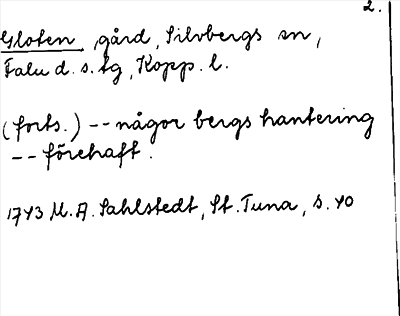 2.
Gloten, gård, Silvbergs sn,
Falu d. s. tg, Kopp. l.
(forts.) -- någor bergshantering
-- förehaft.
1743 M. A. Sahlstedt, St. Tuna, s. 40